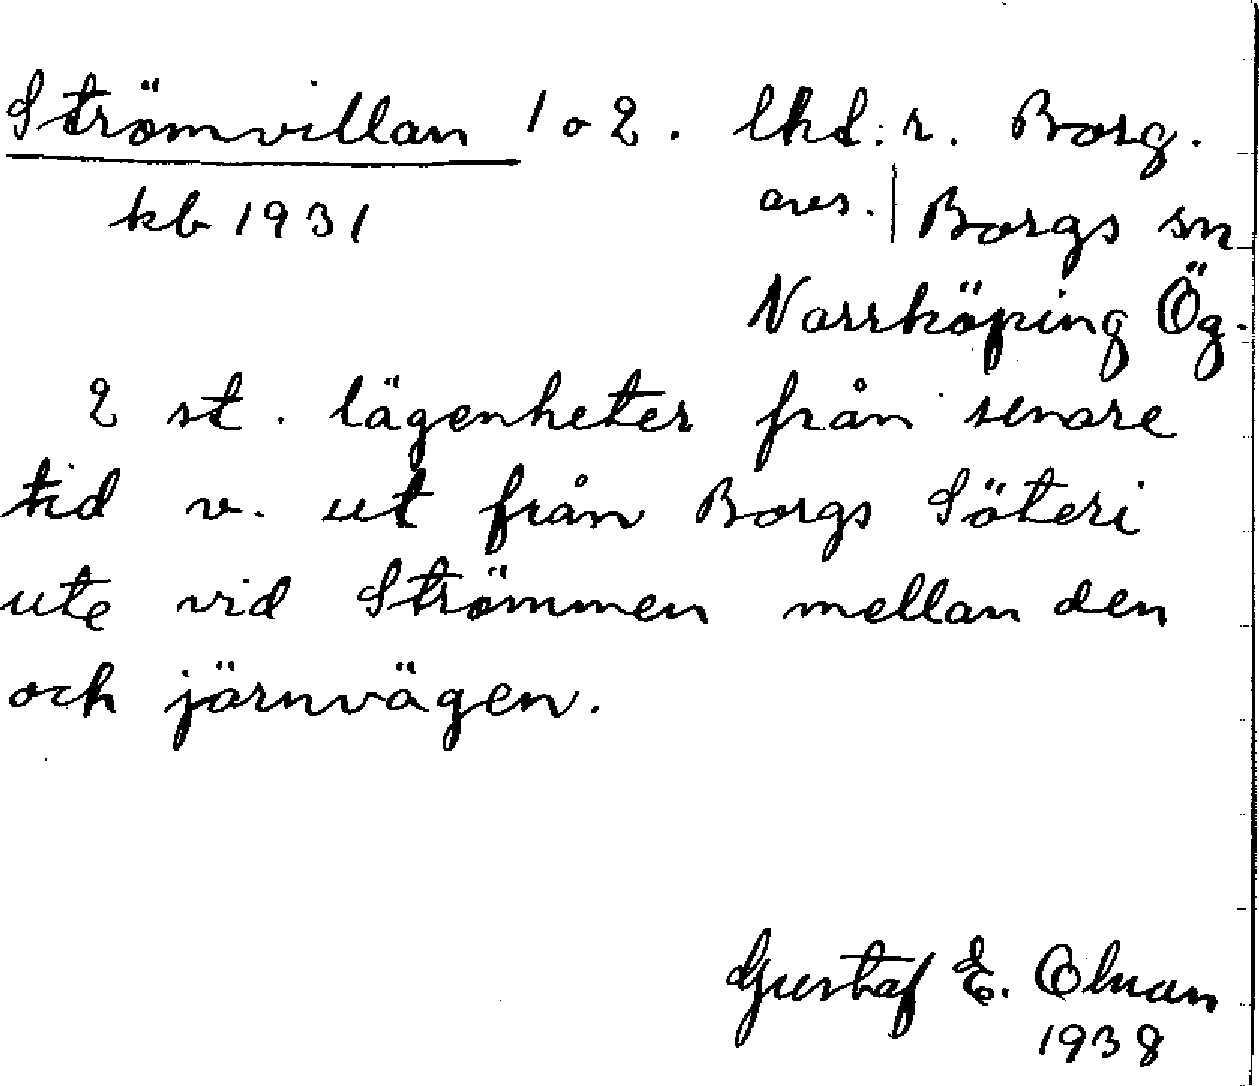 Strömvillan 1 o 2. lhd: r. Borg.
kb 1931
avs. | Borgs sn
Norrköping Ög.
2 st. lägenheter från senare
tid v. ut från Borgs Säteri
ute vid Strömmen mellan den
och järnvägen.
Gustaf E.
1938